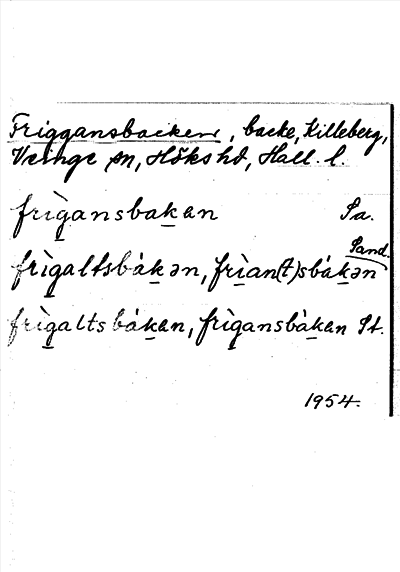 Friggansbacken, backe, Killeberg,
Veinge sn, Höks hd, Hall. l.
frìgansbakan Sa.
Sand.
frìgaltsbàkən, frìan(t)sbàkən
frìgaltsbàken, frìgansbàken St.
1954.